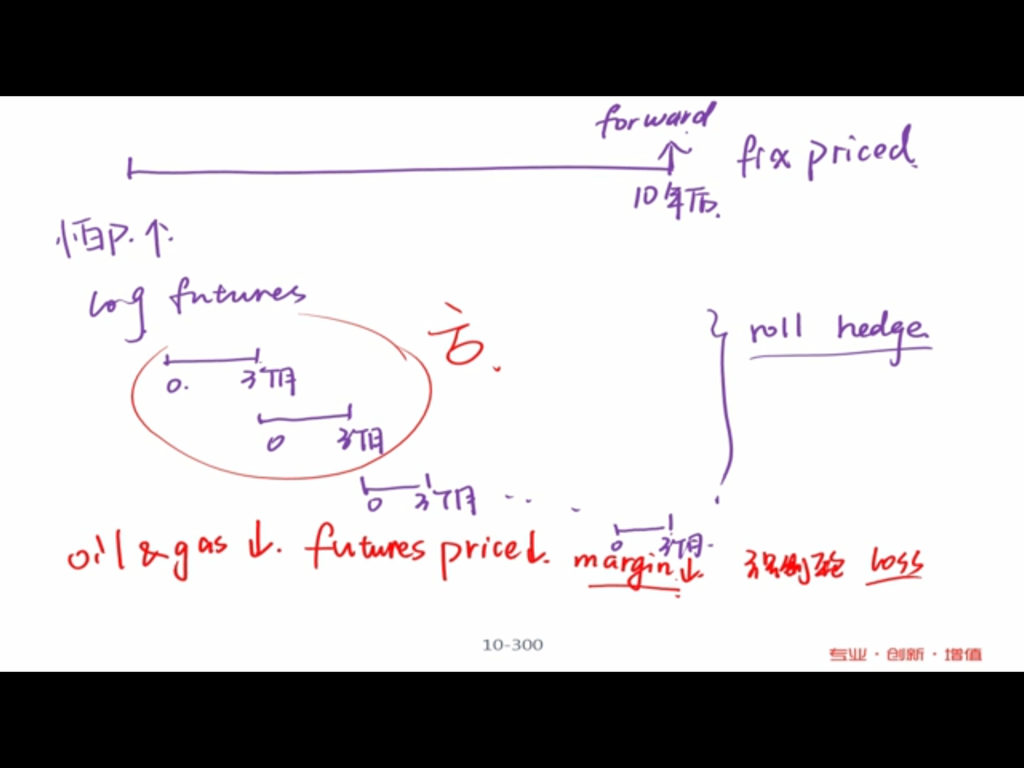 forward
fix priced
10年后.
怕P.↑.
long futures
0. 3个月
亏.
roll hedge
0 3个月
0 3个月 ...
0 3个月.
oil & gas ↓. futures price↓. margin↓. 强制平仓 loss
10-300
专业·创新·增值